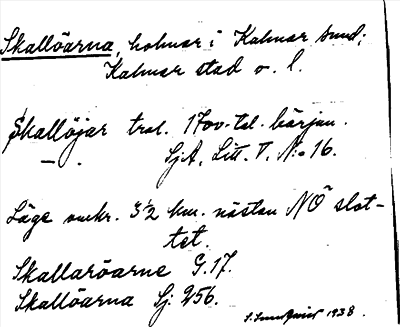 Skallöarna, holmar i Kalmar sund;
Kalmar stad o. l.
Skallöjar trol. 1700-tal. början.
— . SjA, Litt. V. N:o 16.
Läge omkr. 3½ km. nästan NO slot-
tet.
Skallaröarne G. 17.
Skallöarna Sj. 256.
1938.